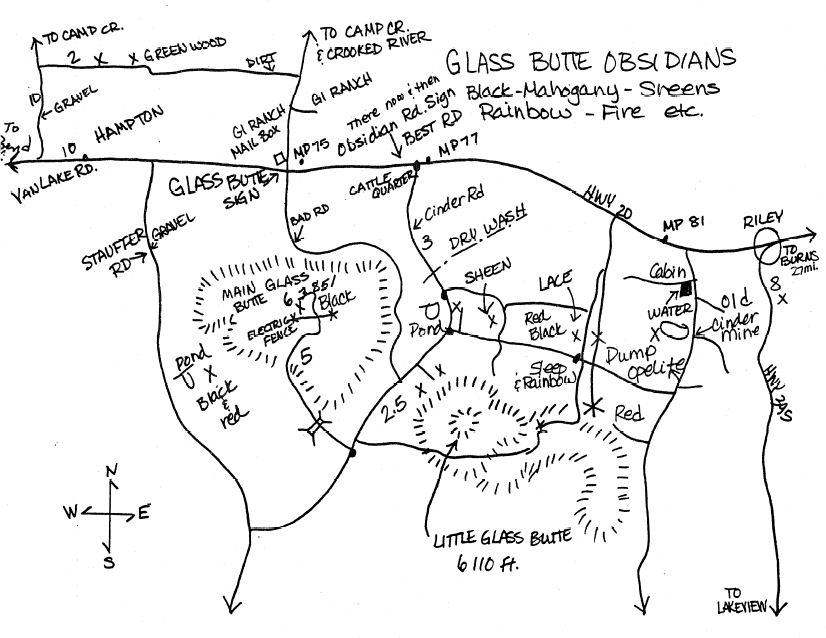 TO CAMP CR.
2
GREENWOOD
DIRT
TO CAMP CR.
& CROOKED RIVER
GLASS BUTTE OBSIDIANS
Black-Mahogany-Sheens
Rainbow-Fire etc.
10
GRAVEL
GI RANCH
GI RANCH
MAIL BOX
There now is then
Obsidian Rd. Sign
BEST RD
MP 77
MP 75
To
HAMPTON
10
VAN LAKE RD.
GLASS BUTTE
SIGN
CATTLE
QUARTER
HWY 20
MP 81
RILEY
TO
BURNS
27mi.
STAUFFER
RD
GRAVEL
BAD RD
Cinder Rd
3
DRY WASH
MAIN GLASS
BUTTE
6,385'
Black
ELECTRIC
FENCE
5
SHEEN
LACE
Cabin
WATER
Old
Cinder
mine
8
Pond
Red
Black
Pond
Black
&
red
Sleep
& Rainbow
Dump
Opelite
Red
HWY 395
2.5
N
W
E
S
LITTLE GLASS BUTTE
6110 FT.
TO
LAKEVIEW